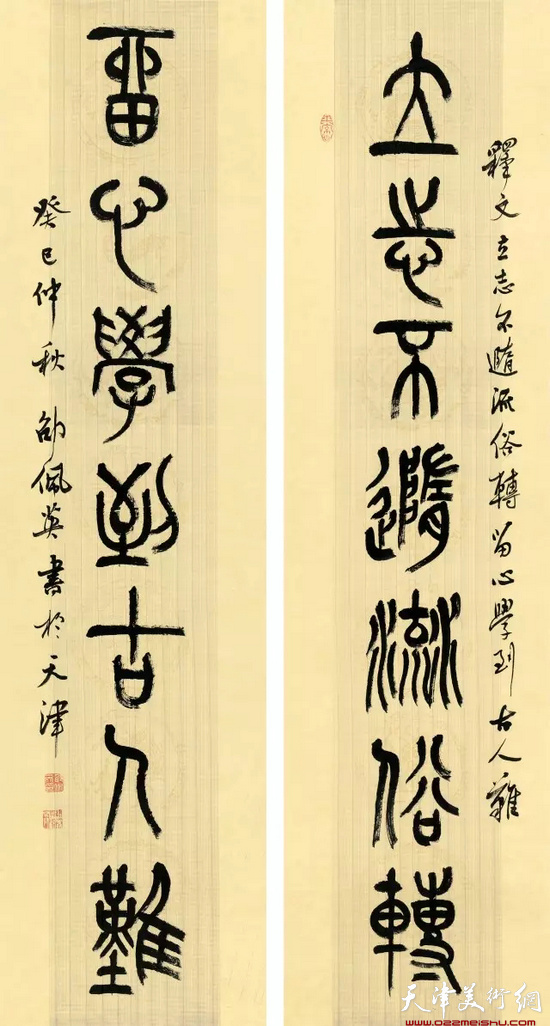 釋文立志不隨流俗轉留心學到古人難
立志不隨流俗轉
留心學到古人難
癸巳仲秋邵佩英書於天津
天津美術網
www.022meishu.com